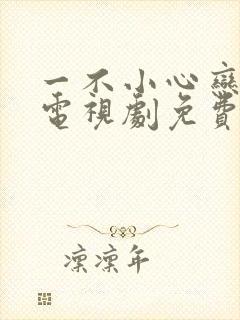 一不小心戀
電視劇免費
凛凛年